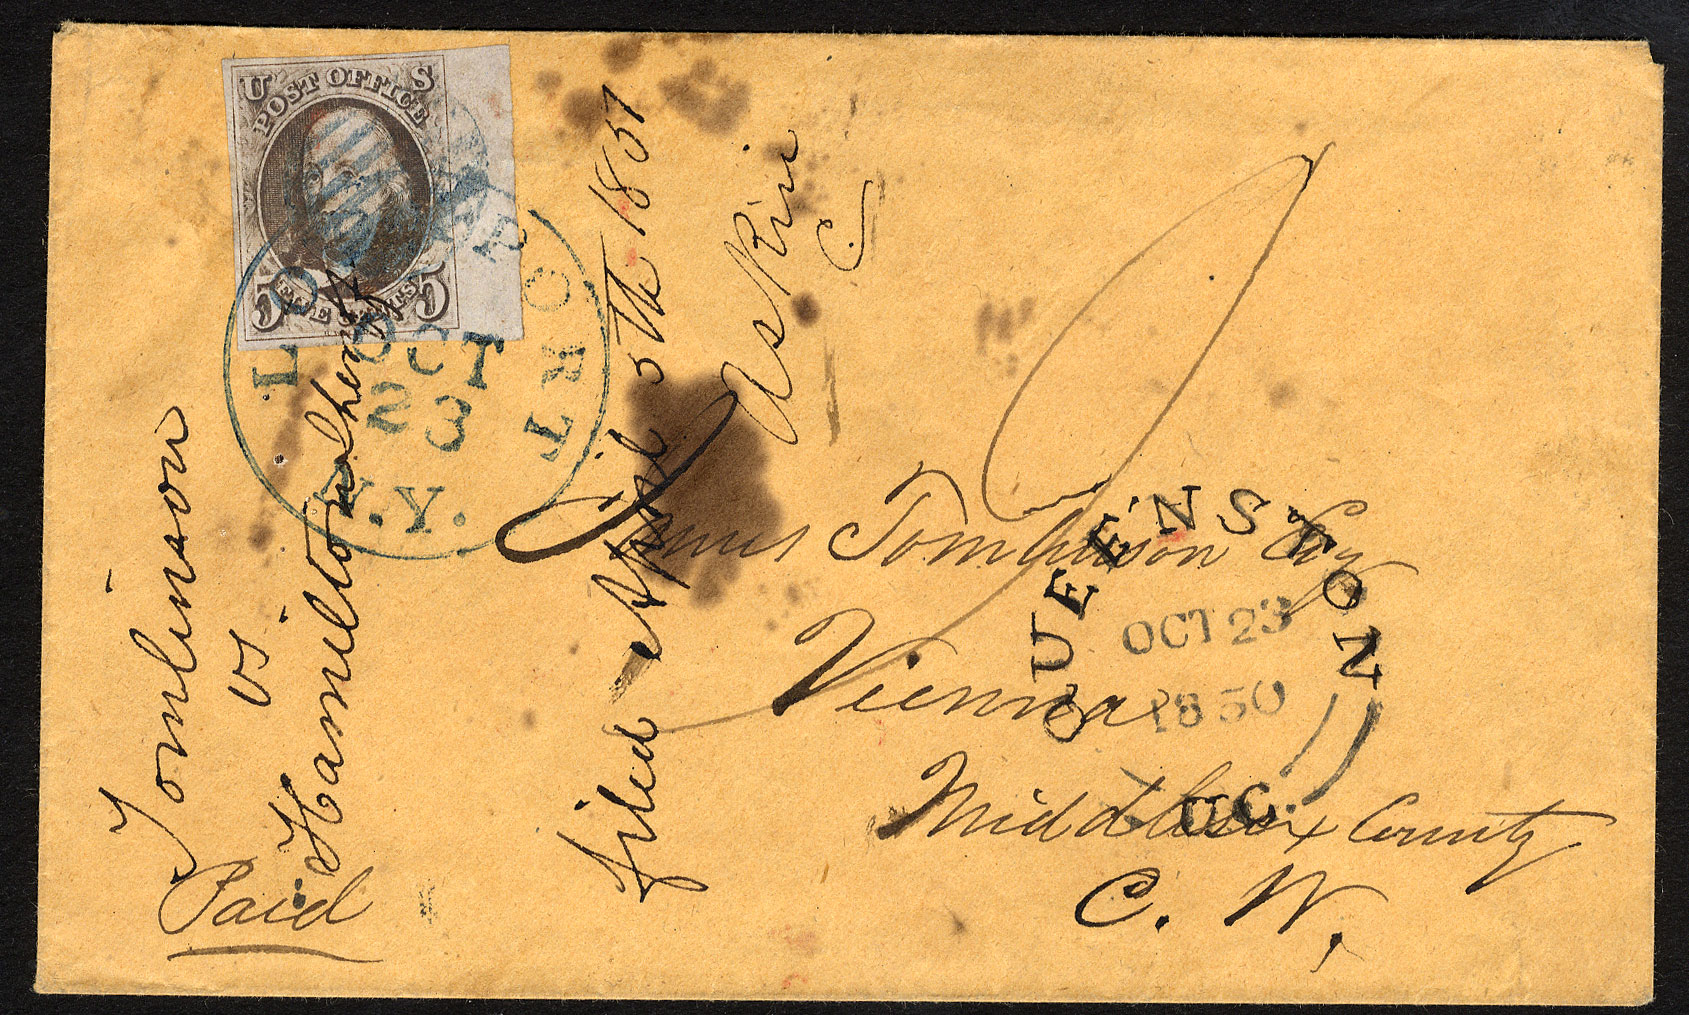 U S
POST OFFICE
5 FIVE CENTS 5
LOCKPORT
OCT
23
N.Y.
Tomlinson
vs.
Hamilton Sheriff
Paid
filed April 5th 1851
Askin
C.
James Tomlinson Esq
Vienna
Middlesex County
C. W.
QUEENSTON
OCT 23
1850
UC.